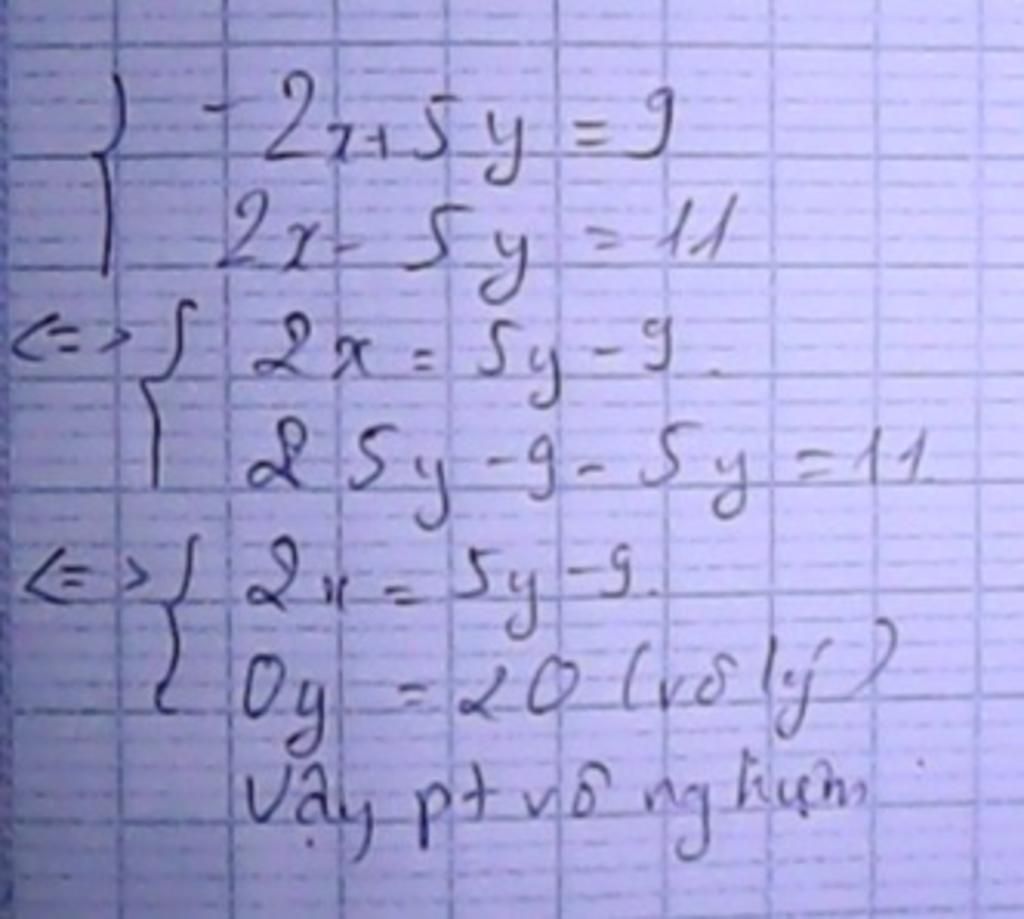 { -2x+5y = 9
2x - 5y = 11
<=> { 2x = 5y - 9.
2 5y - 9 - 5y = 11
<=> { 2x = 5y - 9.
0y = 20 (vô lý)
Vậy pt vô nghiệm